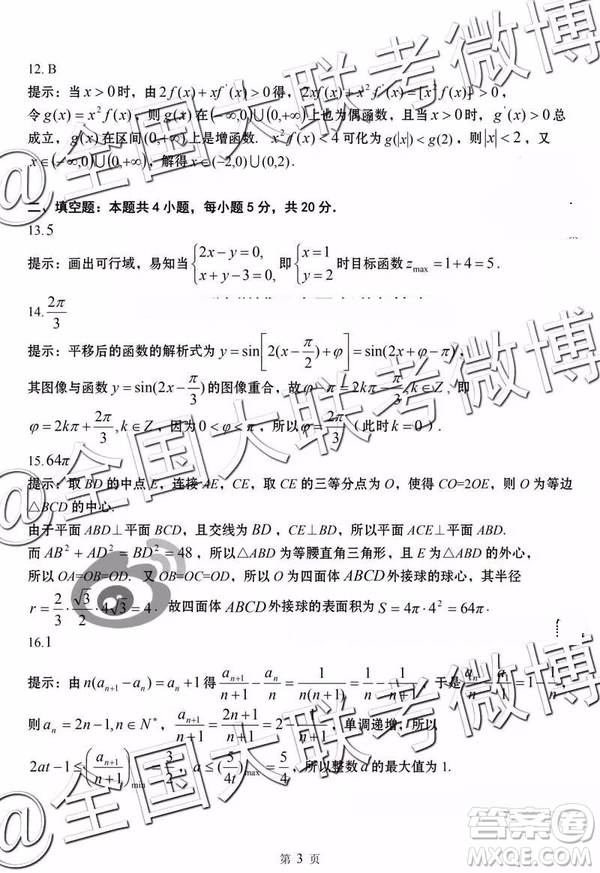 12.B
提示：当 x > 0 时，由 2f(x)+xf'(x)>0 得，2xf(x)+x²f'(x)=[x²f(x)]'>0，
令 g(x)=x²f(x)，则 g(x) 在 (-∞,0)∪(0,+∞) 上也为偶函数，且当 x > 0 时，g'(x)>0 总
成立，g(x) 在区间 (0,+∞) 上是增函数．x²f(x)<4 可化为 g(|x|)<g(2)，则 |x|<2，又
x∈(-∞,0)∪(0,+∞)，解得 x∈(-2,0)∪(0,2)．
二、填空题：本题共 4 小题，每小题 5 分，共 20 分．
13.5
提示：画出可行域，易知当 {2x-y=0, x+y-3=0, 即 {x=1 y=2 时目标函数 z_max=1+4=5．
14. 2π/3
提示：平移后的函数的解析式为 y=sin[2(x-π/2)+φ]=sin(2x-π+φ)，
其图像与函数 y=sin(2x-π/3) 的图像重合，故 φ-π=2kπ-π/3, k∈Z，即
φ=2kπ+2π/3, k∈Z，因为 0<φ<π，所以 φ=2π/3（此时 k=0）．
15.64π
提示：取 BD 的中点 E，连接 AE，CE，取 CE 的三等分点为 O，使得 CO=2OE，则 O 为等边
△BCD 的中心．
由于平面 ABD⊥平面 BCD，且交线为 BD，CE⊥BD，所以平面 CE⊥平面 ABD．
而 AB²+AD²=BD²=48，所以△ABD 为等腰直角三角形，且 E 为△ABD 的外心，
所以 OA=OB=OD．又 OB=OC=OD，所以 O 为四面体 ABCD 外接球的球心，其半径
r=2/3·√3/2·4√3=4．故四面体 ABCD 外接球的表面积为 S=4π·4²=64π．
16.1
提示：由 n(a_{n+1}-a_n)=a_n+1 得 a_{n+1}/(n+1)-a_n/n=1/(n(n+1))=1/n-1/(n+1)，于是 a_n/n-a_1/1=1-1/n，
则 a_n=2n-1, n∈N*，a_{n+1}/(n+1)=(2n+1)/(n+1)=2-1/(n+1)，单调递增，所以
2at-1≤(a_{n+1}/(n+1))_min=3/2，a≤(5/(4t))_max=5/4，所以整数 a 的最大值为 1．
第 3 页
@全国大联考微博
答案圈
MXQE.COM